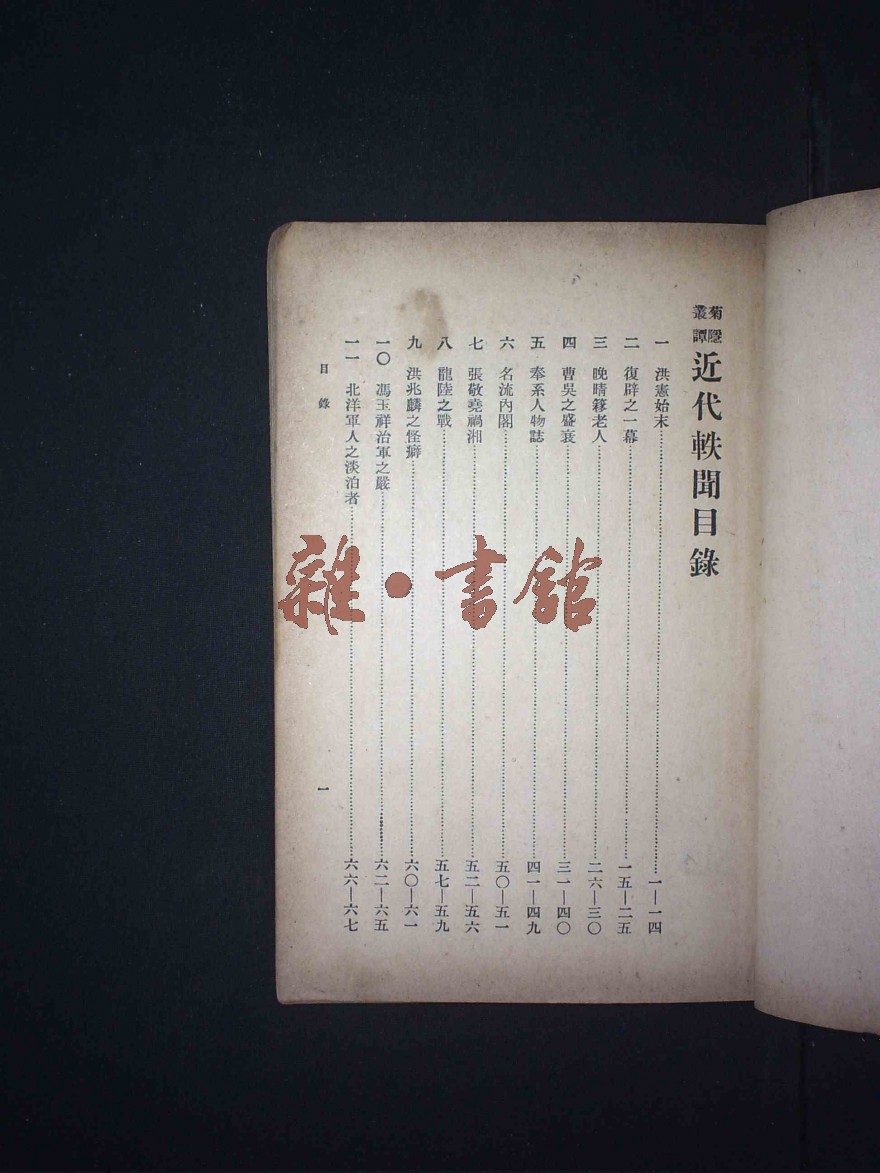 菊隱叢譚 近代軼聞目錄
一 洪憲始末 一—一四
二 復辟之一幕 一五—二五
三 晚晴簃老人 二六—三〇
四 曹吳之盛衰 三一—四〇
五 奉系人物誌 四一—四九
六 名流內閣 五〇—五一
七 張敬堯禍湘 五二—五六
八 龍陸之戰 五七—五九
九 洪兆麟之怪癖 六〇—六一
一〇 馮玉祥治軍之嚴 六二—六五
一一 北洋軍人之淡泊者 六六—六七
目錄
一
雜·書館